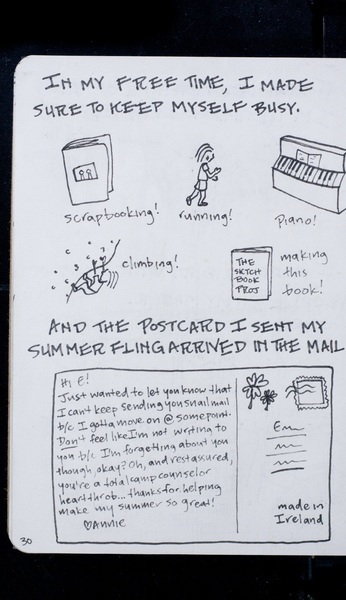 IN MY FREE TIME, I MADE
SURE TO KEEP MYSELF BUSY.
scrapbooking!
running!
piano!
climbing!
THE
SKTCH
BOOK
PROJ
making
this
book!
AND THE POSTCARD I SENT MY
SUMMER FLING ARRIVED IN THE MAIL
Hi E!
Just wanted to let you know that
I can't keep sending you snail mail
b/c I gotta move on @ some point.
Don't feel like I'm not writing to
you b/c I'm forgetting about you
though, okay? Oh, and rest assured,
you're a total camp counselor
heartthrob... thanks for helping
make my summer so great!
♡Annie
made in
Ireland
30